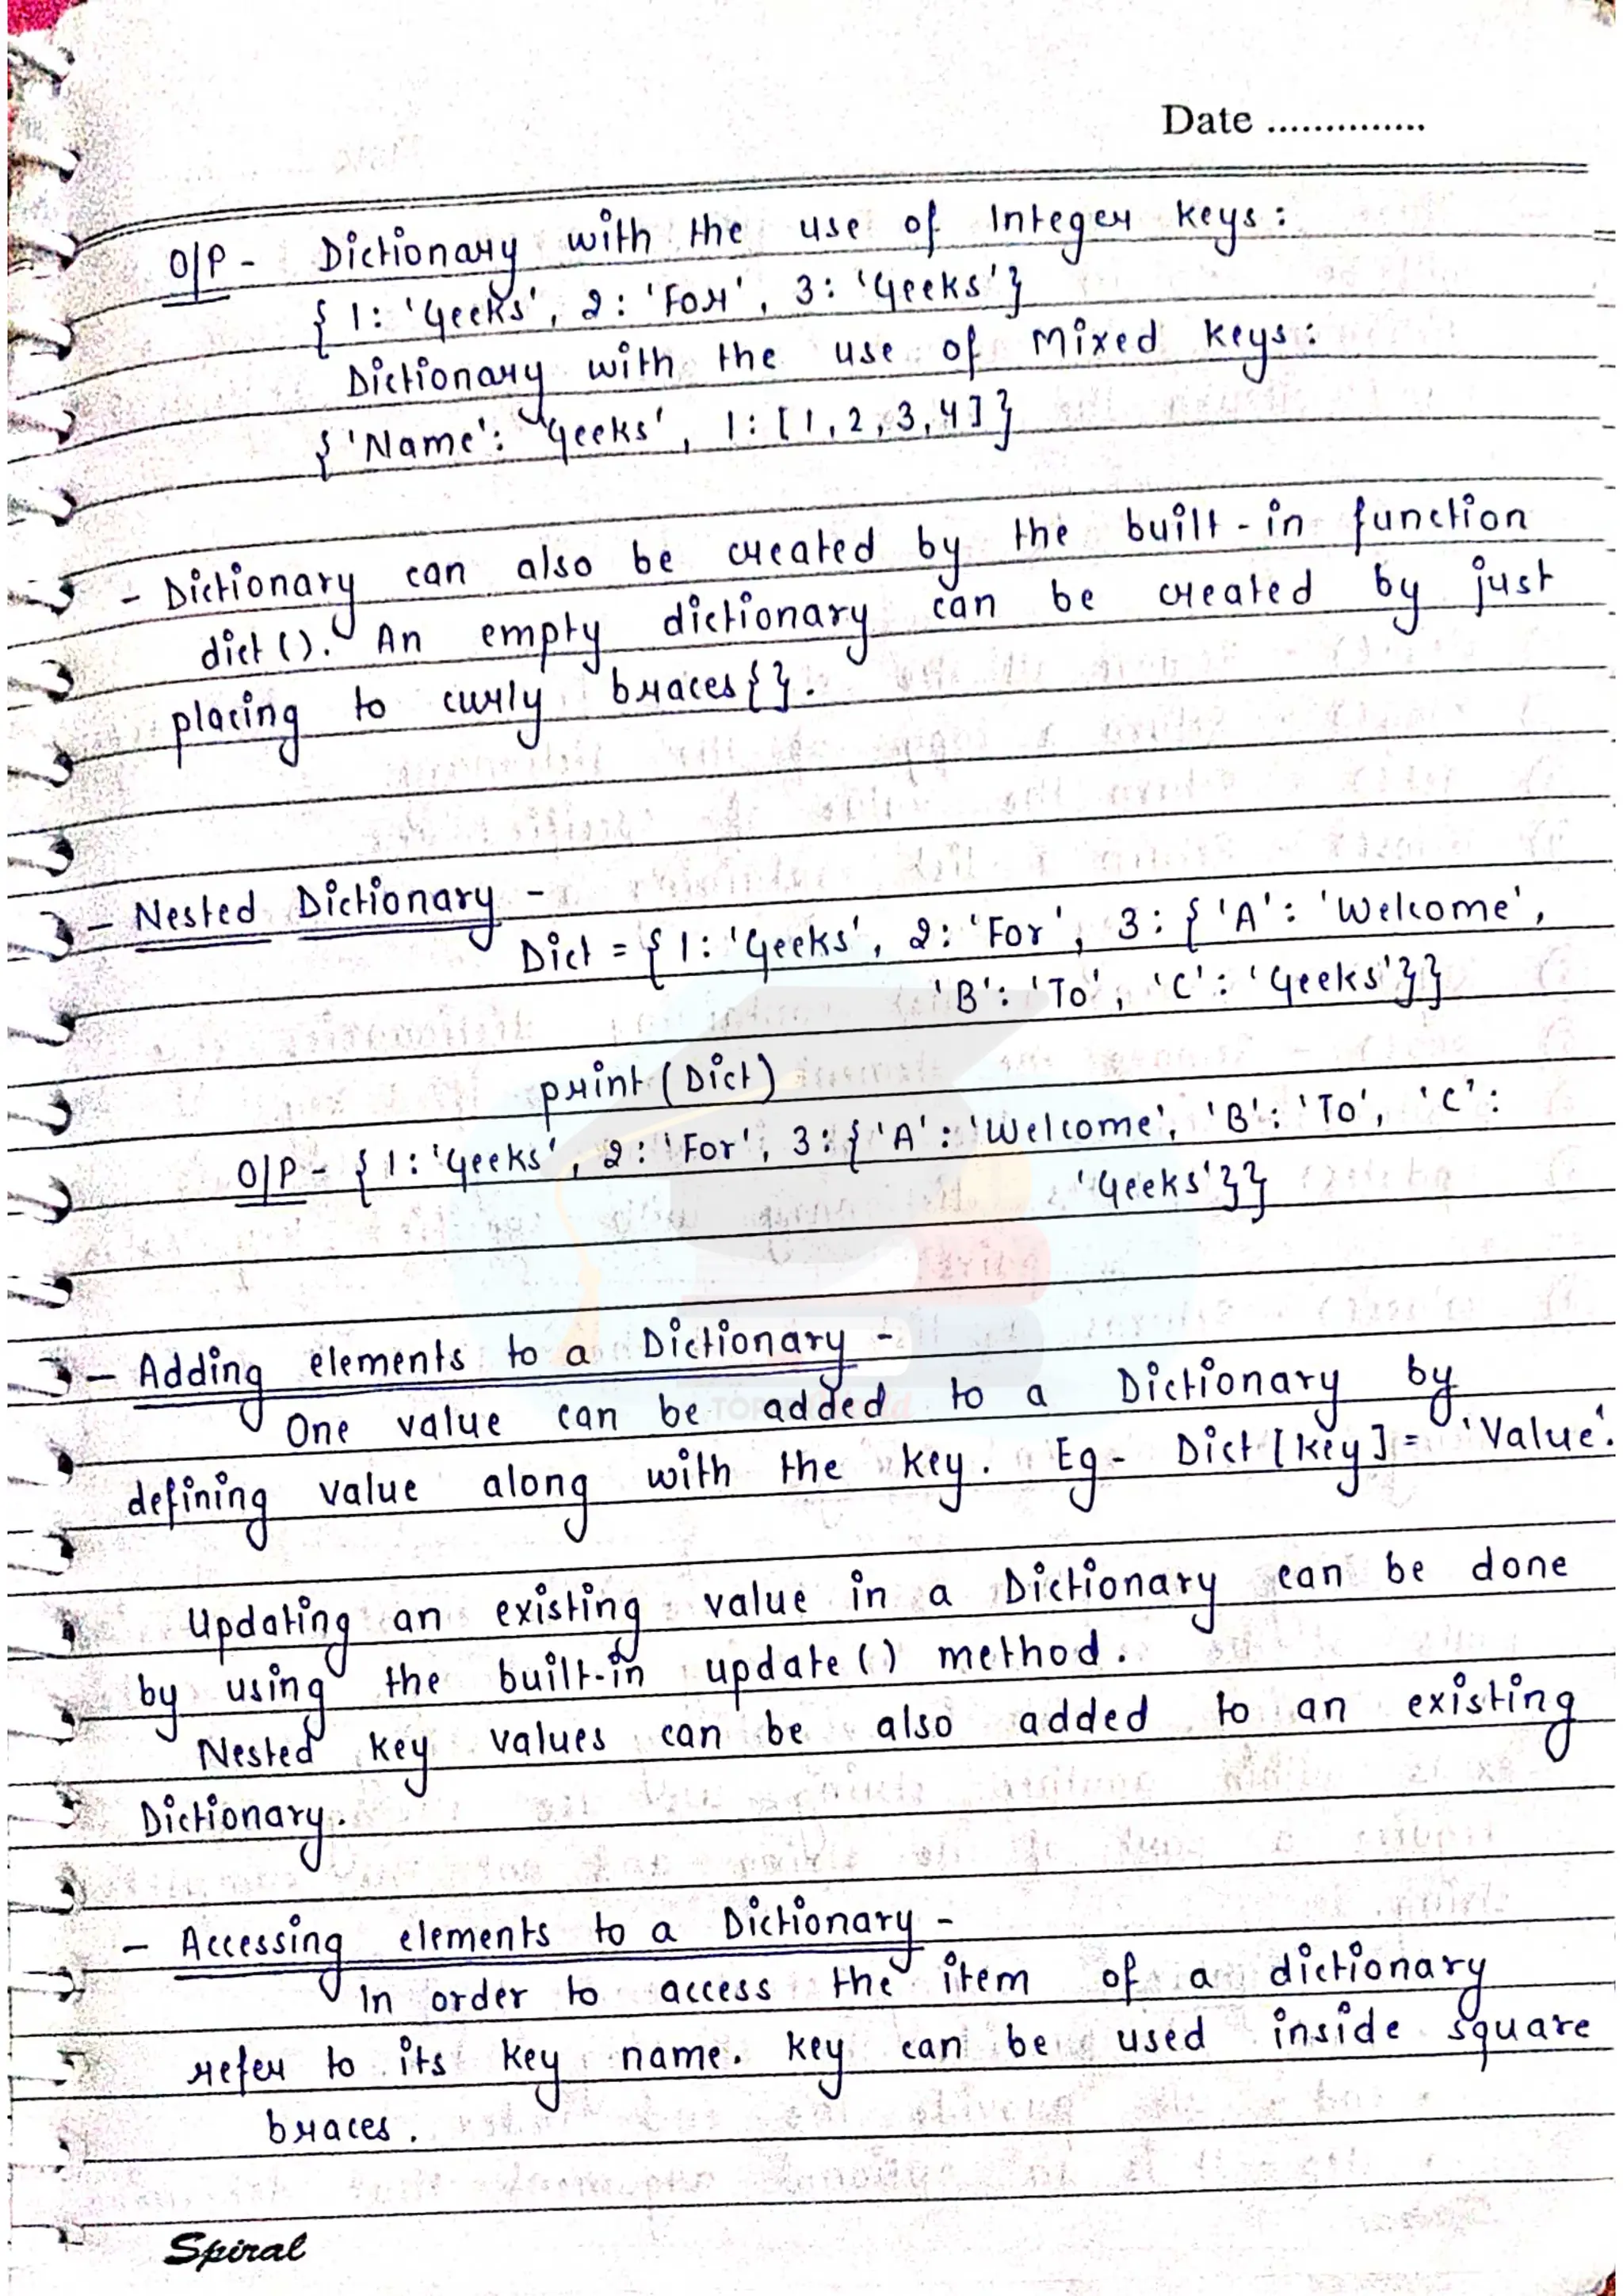 Date ..............
O/P - Dictionary with the use of Integer keys:
{ 1: 'Geeks', 2: 'For', 3: 'Geeks'}
Dictionary with the use of Mixed keys:
{ 'Name': 'Geeks', 1: [1, 2, 3, 4]}
- Dictionary can also be created by the built-in function
dict(). An empty dictionary can be created by just
placing to curly braces{}.
- Nested Dictionary -
Dict = { 1: 'Geeks', 2: 'For', 3: { 'A': 'Welcome',
'B': 'To', 'C': 'Geeks'}}
print (Dict)
O/P - { 1: 'Geeks', 2: 'For', 3: { 'A': 'Welcome', 'B': 'To', 'C':
'Geeks'}}
- Adding elements to a Dictionary -
One value can be added to a Dictionary by
defining value along with the key. Eg- Dict [key] = 'Value'.
Updating an existing value in a Dictionary can be done
by using the built-in update() method.
Nested key values can be also added to an existing
Dictionary.
- Accessing elements to a Dictionary -
In order to access the item of a dictionary
refer to its key name. key can be used inside square
braces.
Spiral